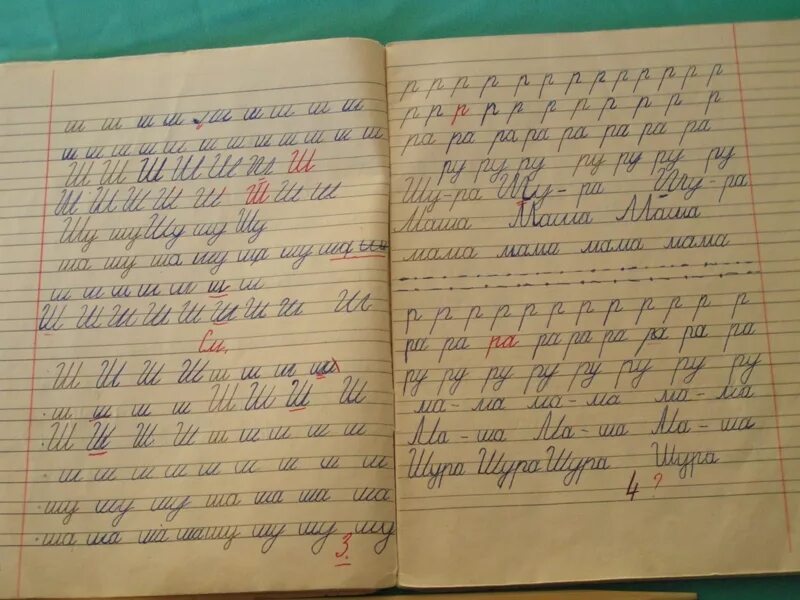 ш ш ш ш ш ш ш ш ш ш
ш ш ш ш ш ш ш ш ш ш ш ш
Ш Ш Ш Ш Ш Ш Ш
Ш Ш Ш Ш Ш Ш Ш Ш Ш
Шу шу Шу шу Шу
ша шу ша шу ша шу ша
ш ш ш ш ш ш ш ш
Ш Ш Ш Ш Ш Ш Ш Ш Ш
См.
Ш Ш Ш Ш ш ш ш ш
ш ш ш ш Ш Ш Ш Ш
Ш Ш Ш Ш ш ш ш ш ш ш
ш ш ш ш ш ш ш ш ш
шу шу шу ша ша ша ша
ша ша ша ша шу шу шу шу
3
р р р р р р р р р р р р р
р р р р р р р р р р р
ра ра ра ра ра ра ра ра
ру ру ру ру ру ру ру
Шу-ра Шу-ра Шу-ра
Маша Маша Маша
мама мама мама мама
р р р р р р р р р р р р
ра ра ра ра ра ра ра ра ра
ру ру ру ру ру ру ру ру
ма-ма ма-ма ма-ма
Ма-ша Ма-ша Ма-ша
Шура Шура Шура Шура
4 ?